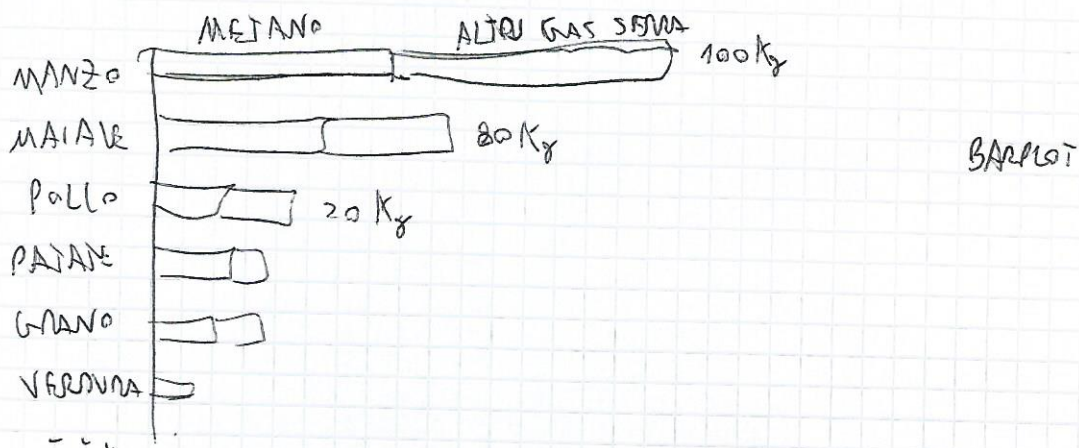 METANO ALTRI GAS SERRA
MANZO 100 Kg
MAIALE 80 Kg
BARPLOT
POLLO 20 Kg
PATATE
GRANO
VERDURA